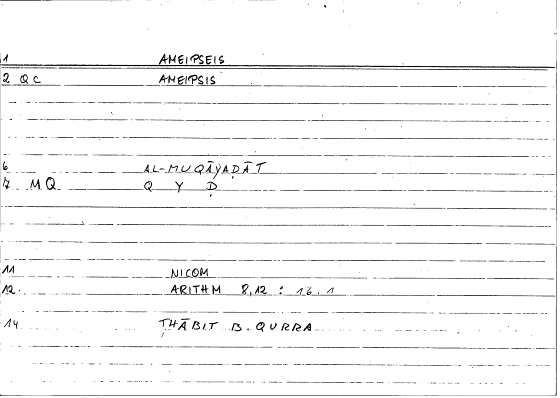 1 AMEIPSEIS
2 QC AMEIPSIS
6 AL-MUQĀYAḌĀT
7 MQ Q Y Ḍ
11 NICOM
12. ARITHM 8,12 : 16.1
14 THĀBIT B. QURRA